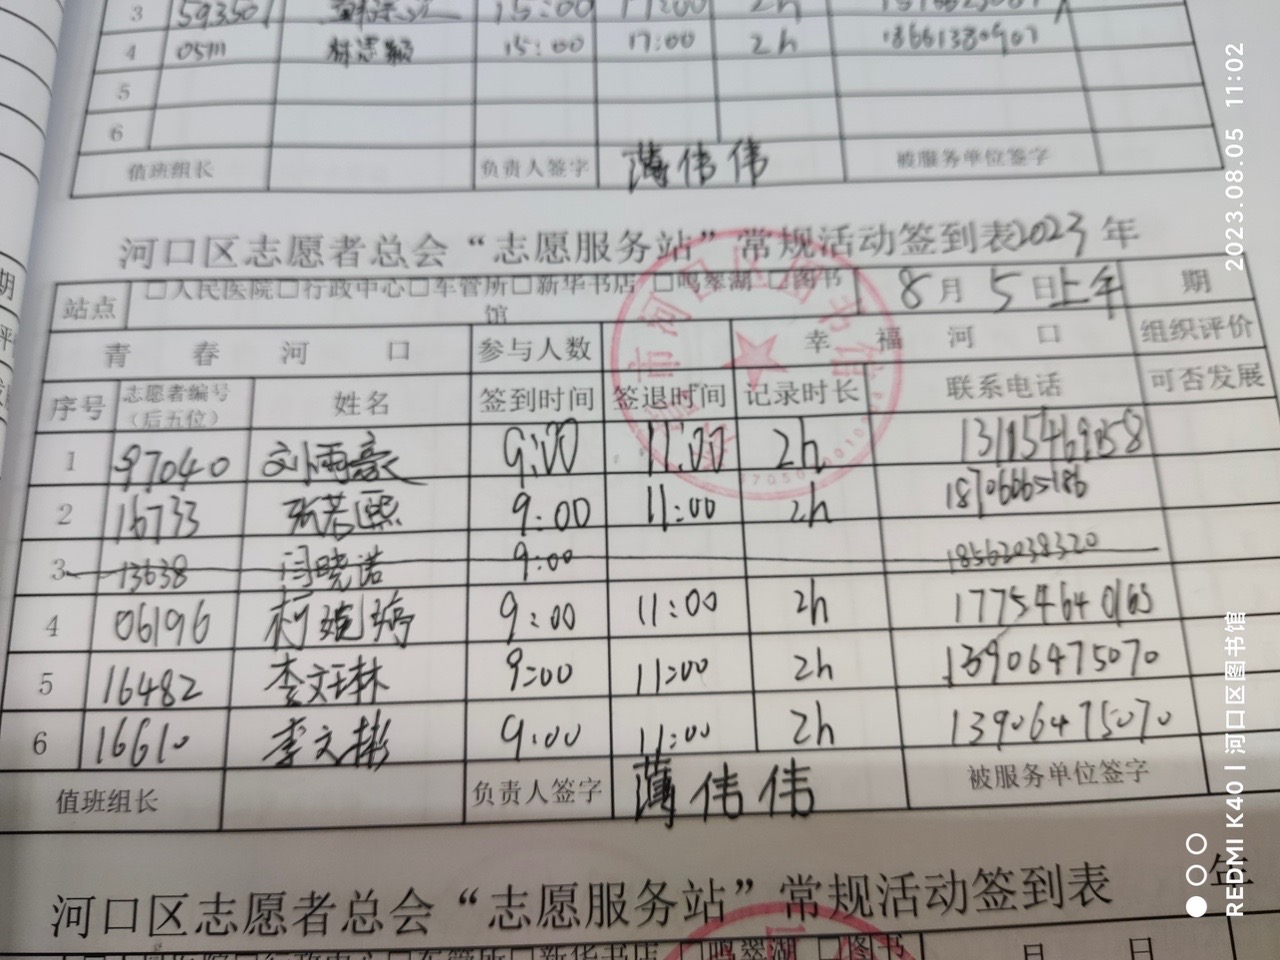 3 593501 15:00 17:00 2h
4 05711 林志颖 15:00 17:00 2h 18661380907
5
6
值班组长 负责人签字 薄伟伟 被服务单位签字
河口区志愿者总会“志愿服务站”常规活动签到表2023年
站点 □人民医院□行政中心□车管所□新华书店 □鸣翠湖 □图书馆 8月5日上午 期
青春河口 参与人数 幸福河口 组织评价
序号 志愿者编号（后五位） 姓名 签到时间 签退时间 记录时长 联系电话 可否发展
1 97040 刘雨豪 9:00 11:00 2h
2 16733 张若熙 9:00 11:00 2h 18706665186
3 13638 闫晓诺 9:00 18562038320
4 06196 9:00 11:00 2h 17754640165
5 16482 李文玨林 9:00 11:00 2h 13906475070
6 16610 李文彬 9:00 11:00 2h 13906475070
值班组长 负责人签字 薄伟伟 被服务单位签字
河口区志愿者总会“志愿服务站”常规活动签到表 年
□鸣翠湖 □图书 月 日
2023.08.05 11:02
REDMI K40 | 河口区图书馆